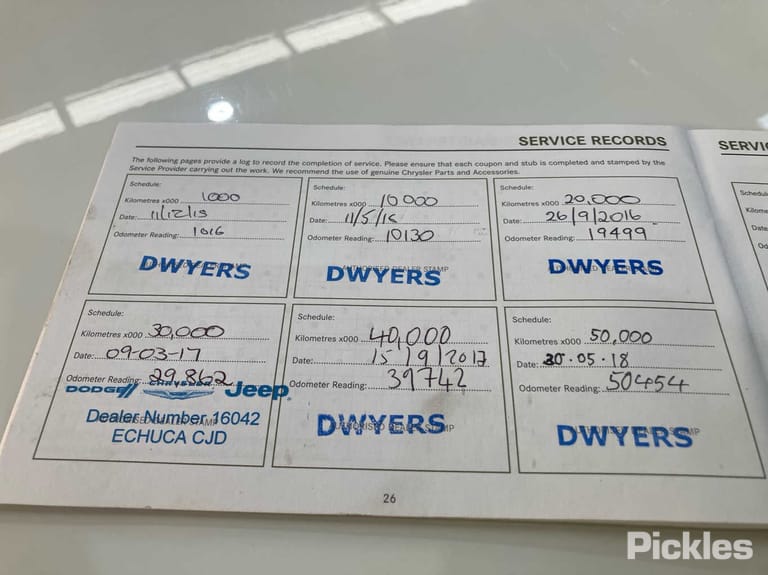 SERVICE RECORDS
The following pages provide a log to record the completion of service. Please ensure that each coupon and stub is completed and stamped by the
Service Provider carrying out the work. We recommend the use of genuine Chrysler Parts and Accessories.
Schedule:
Kilometres x000 1000
Date: 11/12/15
Odometer Reading: 1016
AUTHORISED DEALER STAMP
DWYERS
Schedule:
Kilometres x000 10000
Date: 11/5/16
Odometer Reading: 10130
AUTHORISED DEALER STAMP
DWYERS
Schedule:
Kilometres x000 20,000
Date: 26/9/2016
Odometer Reading: 19499
AUTHORISED DEALER STAMP
DWYERS
Schedule:
Kilometres x000 30,000
Date: 09-03-17
Odometer Reading: 29,862
DODGE CHRYSLER Jeep
Dealer Number 16042
AUTHORISED DEALER STAMP
ECHUCA CJD
Schedule:
Kilometres x000 40,000
Date: 15/9/2017
Odometer Reading: 39742
AUTHORISED DEALER STAMP
DWYERS
Schedule:
Kilometres x000 50,000
Date: 30.05.18
Odometer Reading: 50454
AUTHORISED DEALER STAMP
DWYERS
26
Pickles